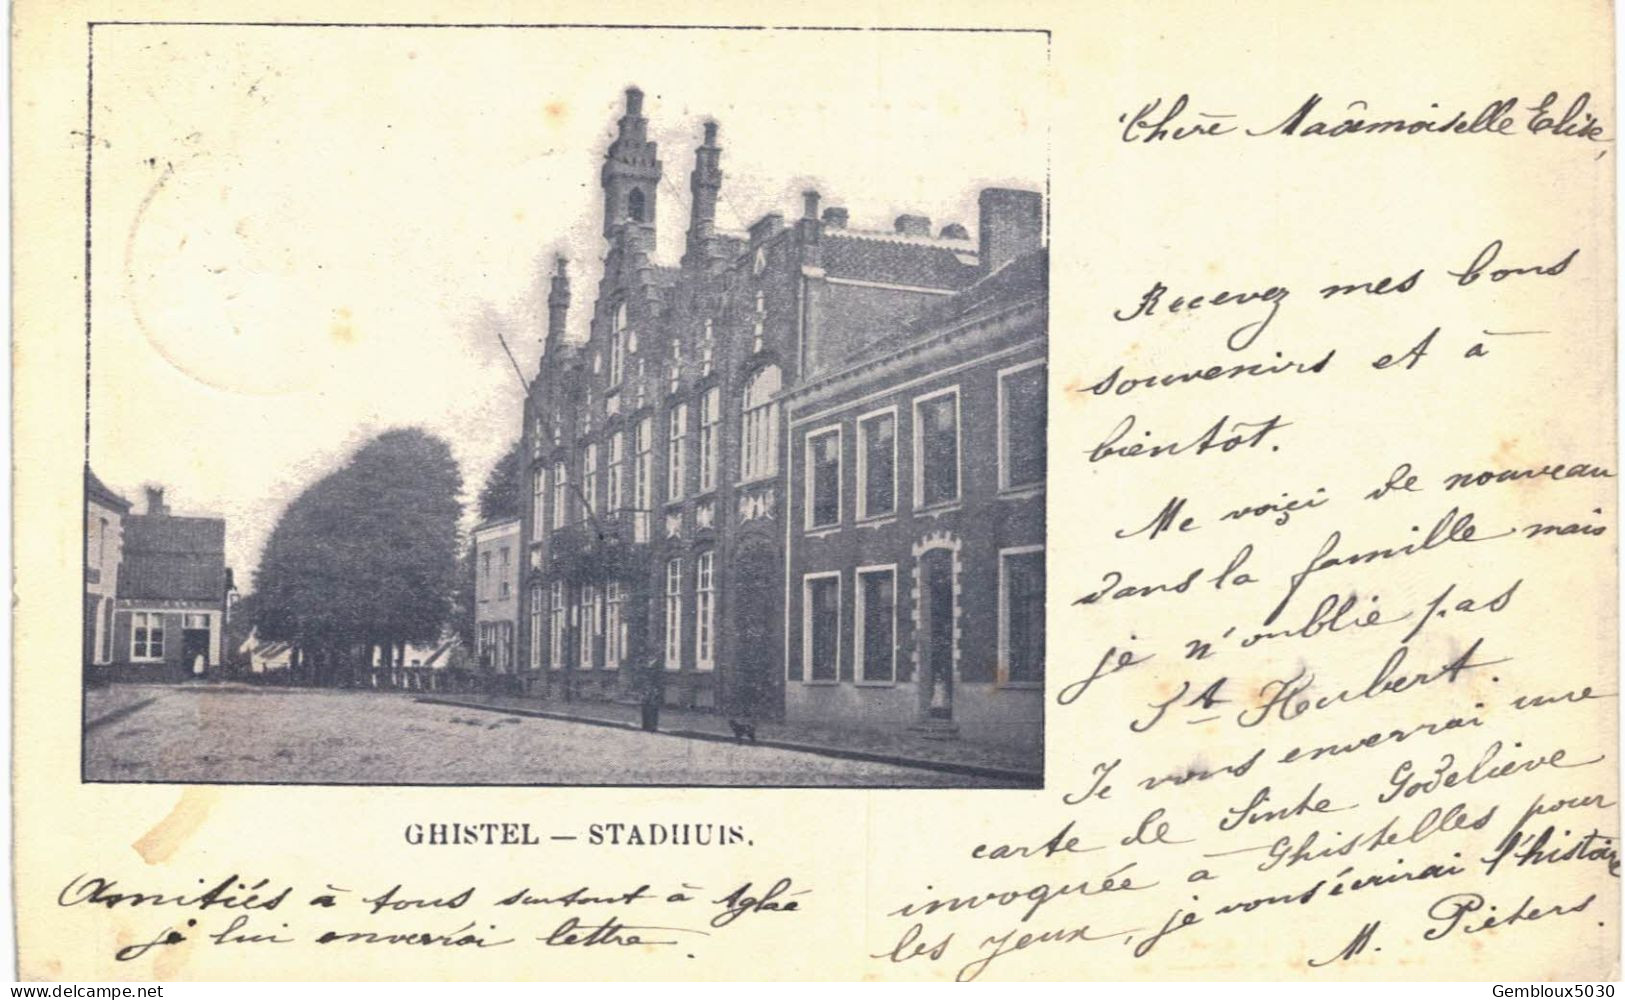 GHISTEL — STADHUIS.
Chère Mademoiselle Elise,
Recevez mes bons
souvenirs et à
bientôt.
Me voiçi de nouveau
dans la famille mais
je n'oublie pas
St Hubert.
Je vous enverrai une
carte de Sinte Godeliève
invoquée à Ghistelles pour
les yeux, je vous écrirai l'histoire
M. Pieters.
Amitiés à tous surtout à Aglaé
je lui enverrai lettre.
delcampe.net
Gembloux5030